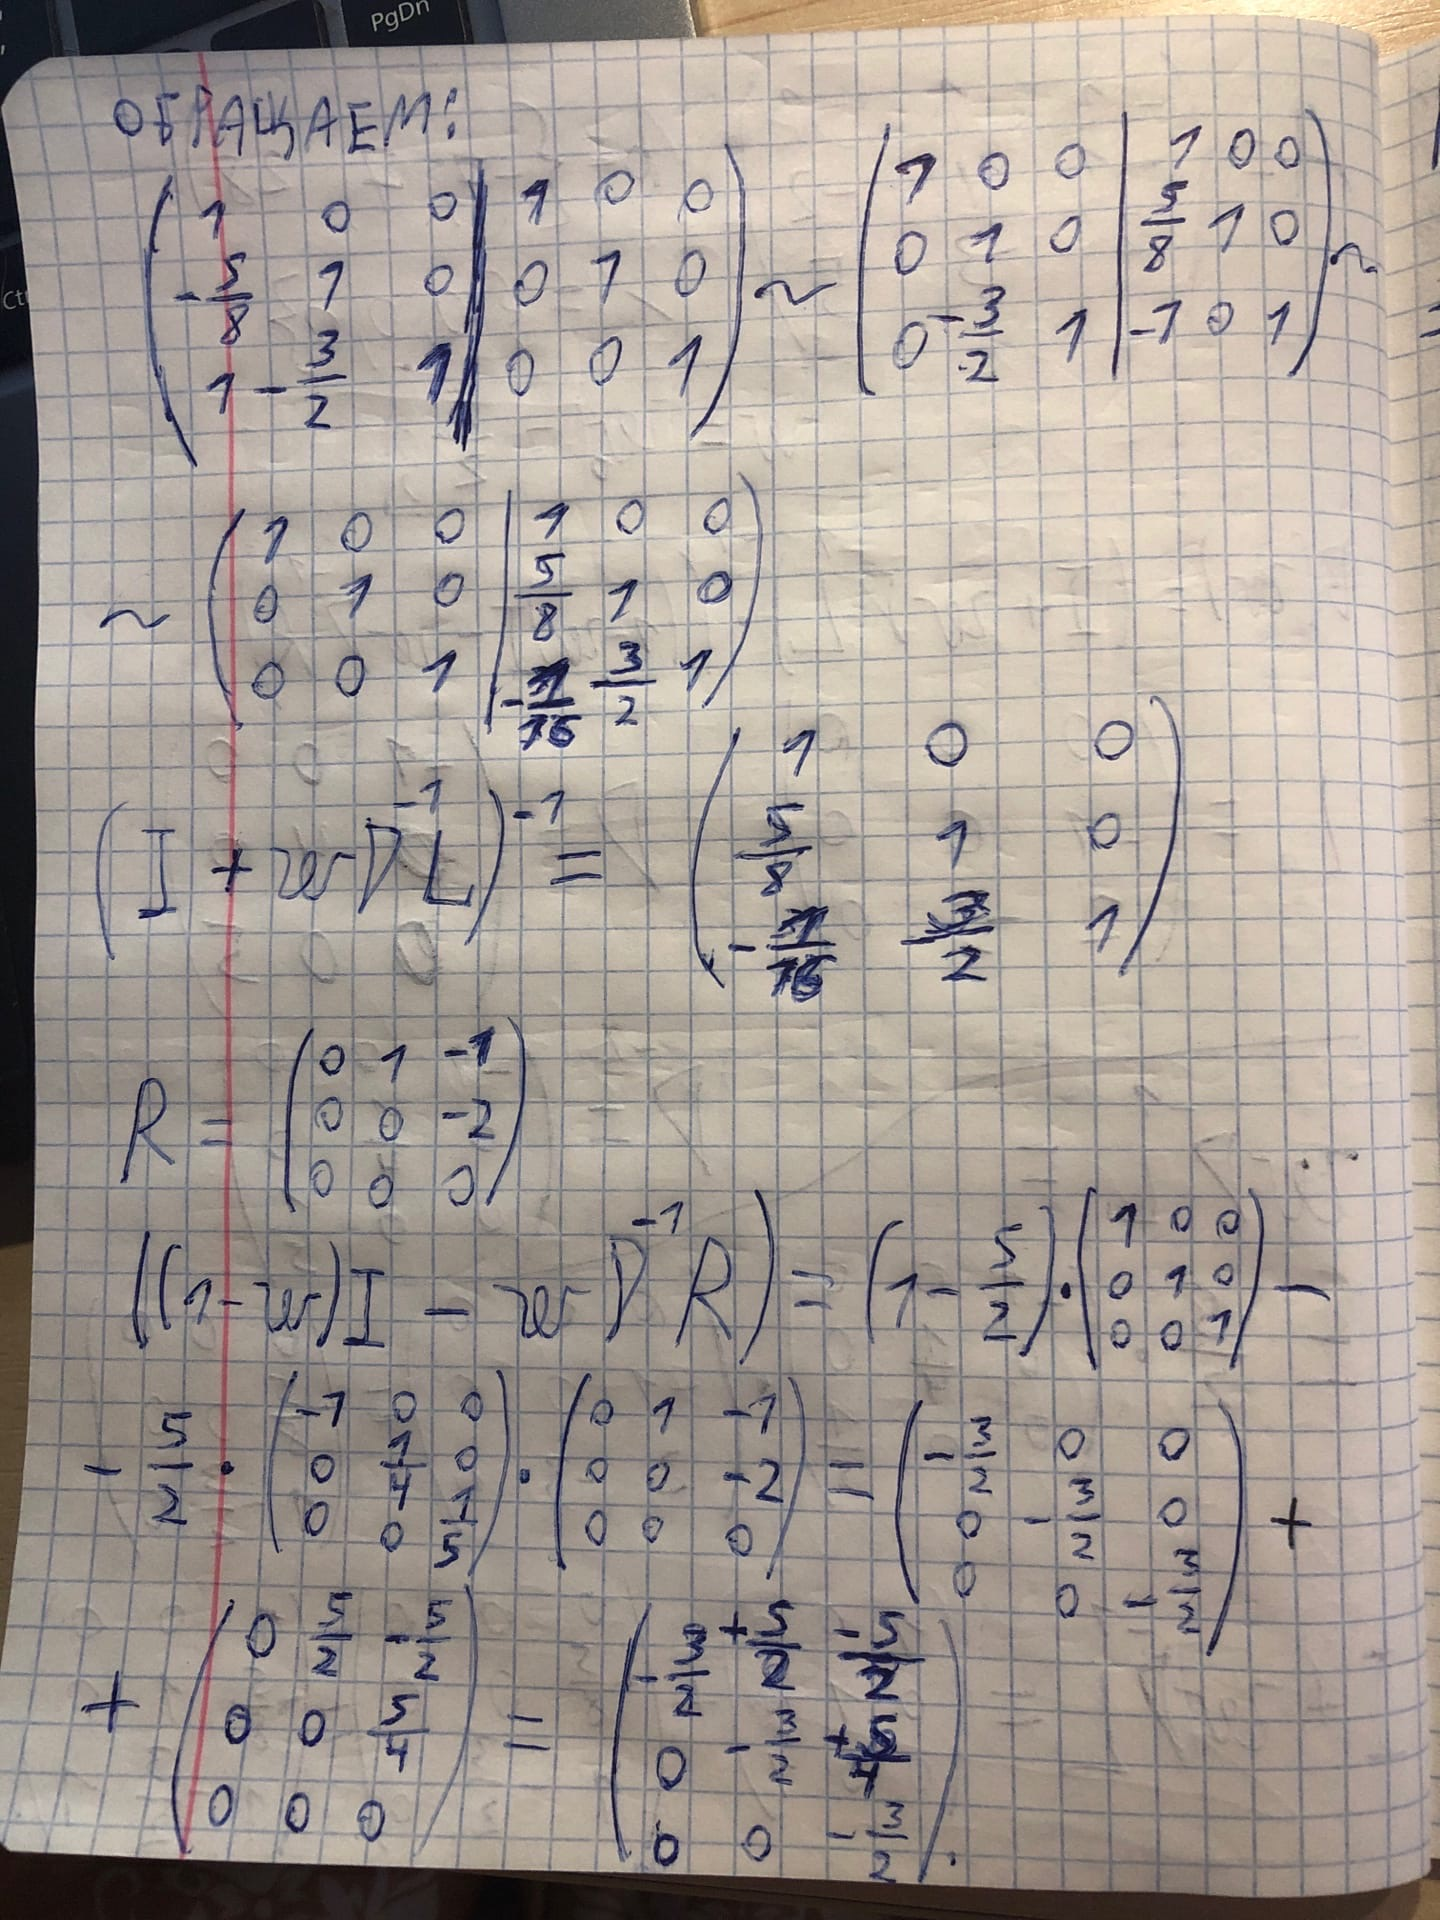 PgDn
Ct
ОБРАЩАЕМ:
( 1 0 0 | 1 0 0 ; -5/8 1 0 | 0 1 0 ; 1 -3/2 1 | 0 0 1 ) ~ ( 1 0 0 | 1 0 0 ; 0 1 0 | 5/8 1 0 ; 0 -3/2 1 | -1 0 1 ) ~
~ ( 1 0 0 | 1 0 0 ; 0 1 0 | 5/8 1 0 ; 0 0 1 | -1/16 3/2 1 )
(I + wD^-1 L)^-1 = ( 1 0 0 ; 5/8 1 0 ; -1/16 3/2 1 )
R = ( 0 1 -1 ; 0 0 -2 ; 0 0 0 )
((1-w)I - wD^-1 R) = (1 - 5/2) · ( 1 0 0 ; 0 1 0 ; 0 0 1 ) -
- 5/2 · ( -1 0 0 ; 0 1/4 0 ; 0 0 1/5 ) · ( 0 1 -1 ; 0 0 -2 ; 0 0 0 ) = ( -3/2 0 0 ; 0 -3/2 0 ; 0 0 -3/2 ) +
+ ( 0 5/2 -5/2 ; 0 0 5/4 ; 0 0 0 ) = ( -3/2 +5/2 -5/2 ; 0 -3/2 +5/4 ; 0 0 -3/2 ) .